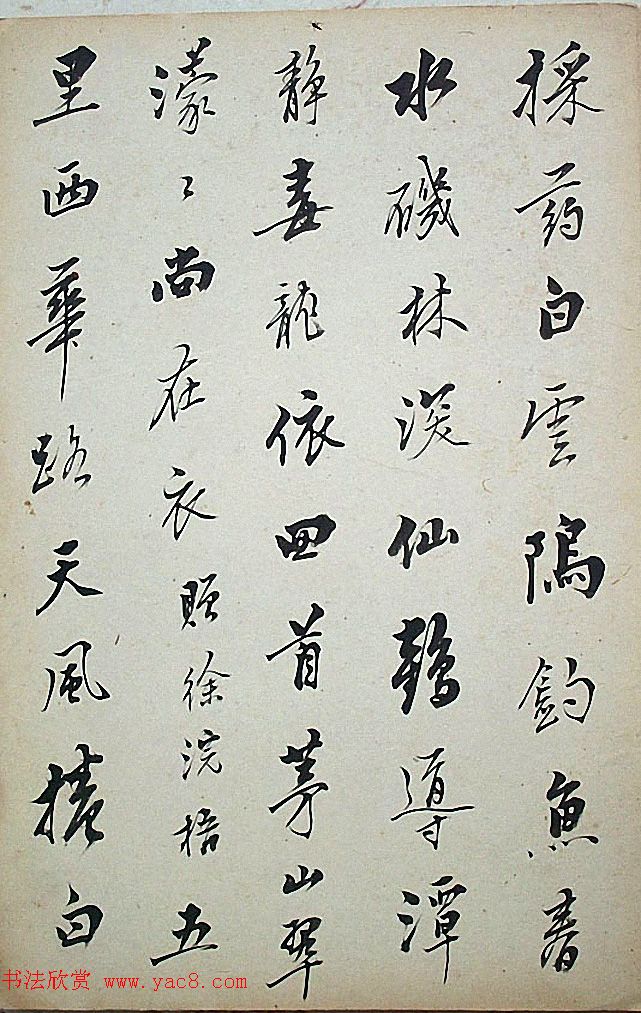 採药白雲隖釣魚春
水磯林深仙鶴導潭
靜毒龍依囬首茅山翠
濛〻尚在衣贈徐浣梧五
里西華路天風白
书法欣赏 www.yac8.com